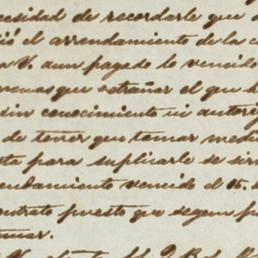 cesidad de recordarle que
ió el arrendamiento de la c
a V. aun pagado lo vencido
remos que estrañar el que h
sin conocimiento ni autori
de tener que tomar medi
sta para suplicarle se sir
endamiento vencido el 15. d
ontrato puesto que segun p